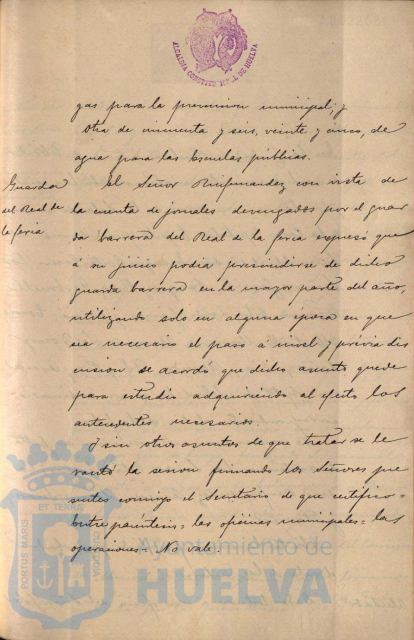 ALCALDIA CONSTITUCIONAL DE HUELVA
gas para la prevencion municipal; y
otra de cincuenta y seis, veinte y cinco, de
agua para las Escuelas públicas.
Guarda
del Real de
la feria
El Señor Rufernandez con vista de
la cuenta de jornales devengados por el guar
da barrera del Real de la feria expresó que
á su juicio podia prescindirse de dicho
guarda barrera en la mayor parte del año,
utilizando solo en alguna época en que
sea necesario el paso á nivel y prévia dis
cusion se acordó que dicho asunto quede
para estudio adquiriendo al efecto los
antecedentes necesarios.
Y sin otros asuntos de que tratar se le
vantó la sesion firmando los Señores pre
sentes conmigo el Secretario de que certifico=
Entre paréntesis= las oficinas municipales= las
operaciones= No vale.
PORTUS MARIS ET TERRAE CUSTODIA
Ayuntamiento de
HUELVA